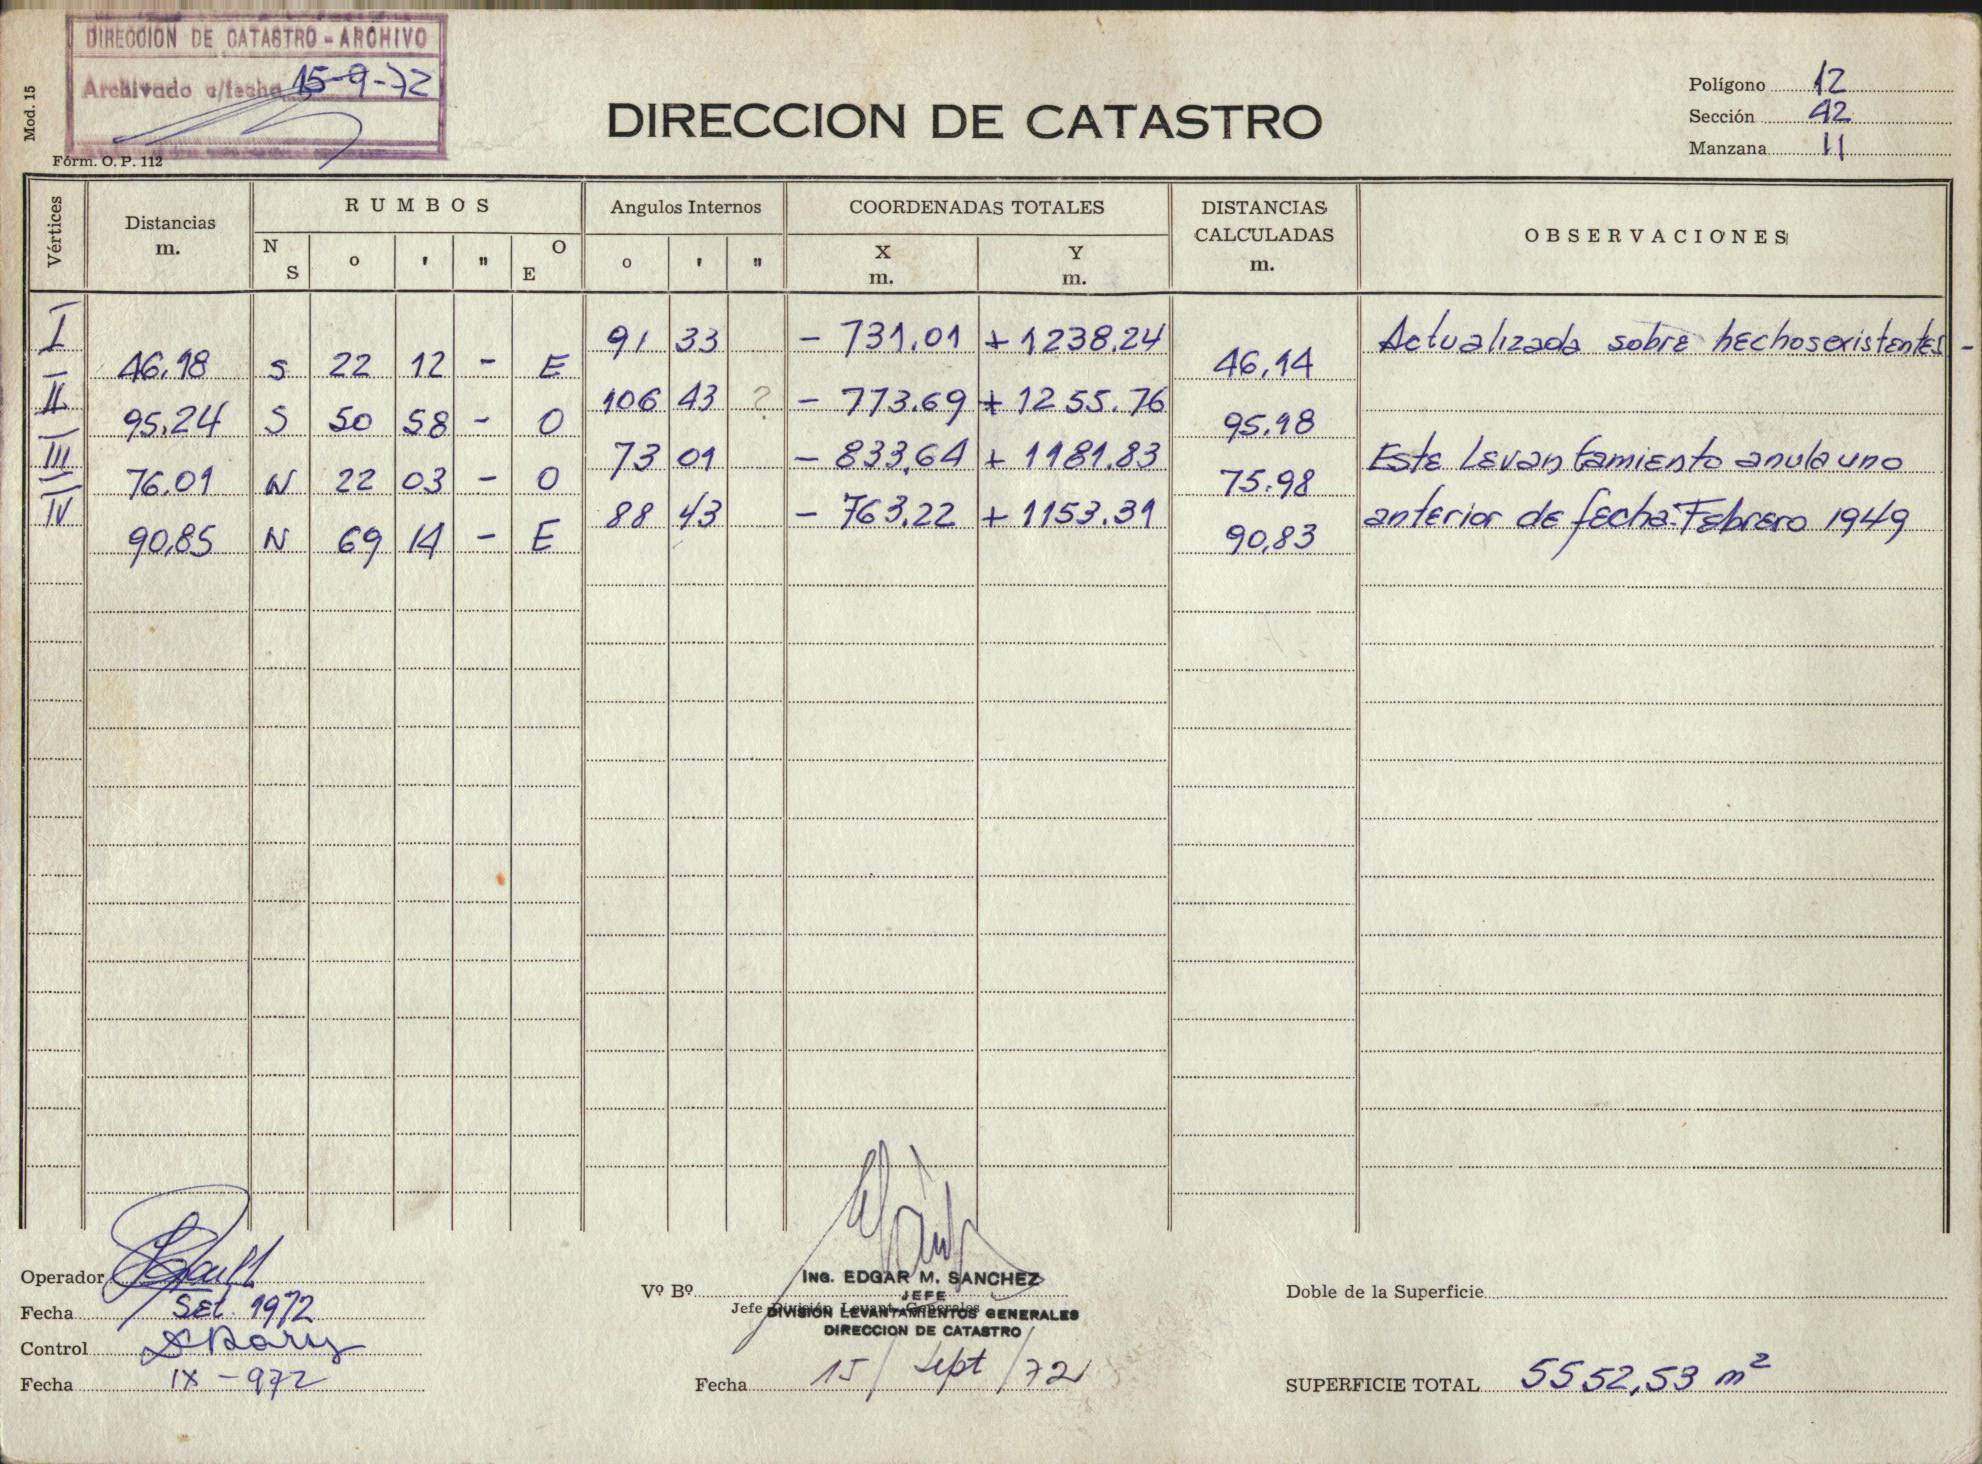 DIRECCION DE CATASTRO - ARCHIVO
Archivado c/fecha 15-9-72
Mod. 15
Fórm. O. P. 112
DIRECCION DE CATASTRO
Polígono 12
Sección 42
Manzana 11
Vértices Distancias m. RUMBOS N S o ' " E O Angulos Internos o ' " COORDENADAS TOTALES X m. Y m. DISTANCIAS CALCULADAS m. OBSERVACIONES
I 91 33 - 731.01 + 1238.24 Actualizada sobre hechos existentes -
46.18 S 22 12 - E 46,14
II 106 43 ? - 773.69 + 1255.76
95.24 S 50 58 - O 95.18
III 73 01 - 833,64 + 1181.83 Este Levantamiento anula uno
76.01 N 22 03 - O 75.98
IV 88 43 - 763,22 + 1153.31 anterior de fecha: Febrero 1949
90,85 N 69 14 - E 90,83
Operador
Fecha Set. 1972
Control
Fecha IX - 972
Vº Bº
ING. EDGAR M. SANCHEZ
JEFE
Jefe División Levant. Generales
DIVISION LEVANTAMIENTOS GENERALES
DIRECCION DE CATASTRO
Fecha 15 / Sept / 72
Doble de la Superficie
SUPERFICIE TOTAL 5552,53 m²